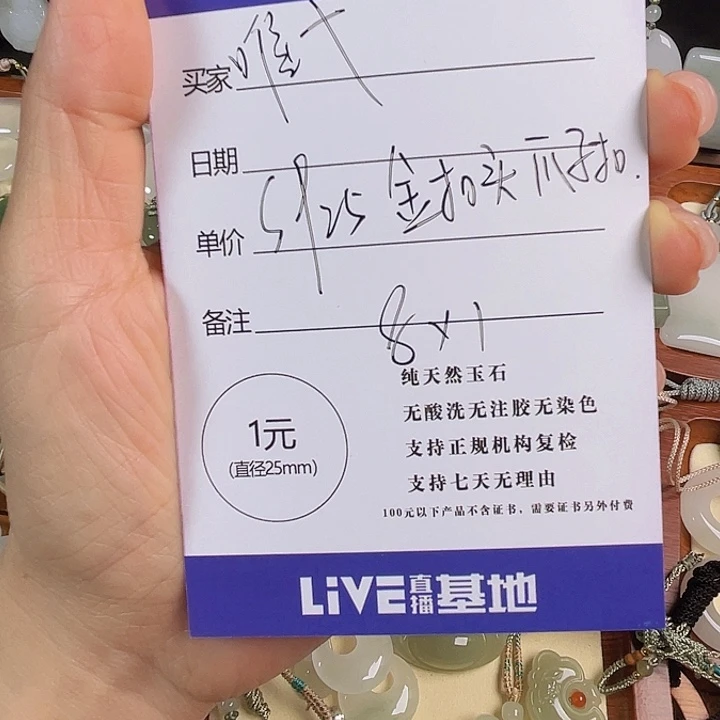 买家 唯一
日期
单价 S925金扣头 爪子扣.
备注 8×1
1元
(直径25mm)
纯天然玉石
无酸洗无注胶无染色
支持正规机构复检
支持七天无理由
100元以下产品不含证书,需要证书另外付费
LiVE直播基地